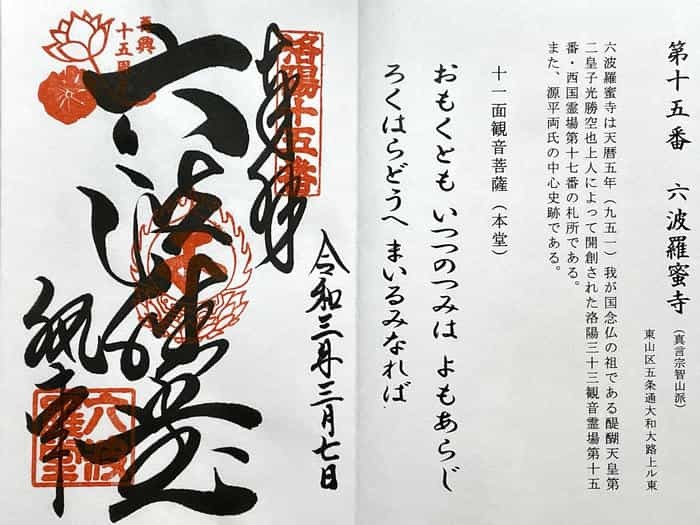 第十五番 六波羅蜜寺
(真言宗智山派)
東山区五条通大和大路上ル東
六波羅蜜寺は天暦五年(九五一)我が国念仏の祖である醍醐天皇第
二皇子光勝空也上人によって開創された洛陽三十三観音霊場第十五
番・西国霊場第十七番の札所である。
また、源平両氏の中心史跡である。
十一面観音菩薩(本堂)
おもくとも いつつのつみは よもあらじ
ろくはらどうへ まいるみなれば
洛陽十五番
奉拝
令和三年三月七日
六波羅堂
再興
十五周年